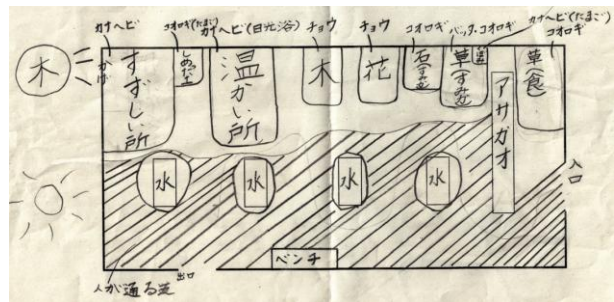 カナヘビ
コオロギ(たまご)
カナヘビ(日光浴)
チョウ
チョウ
コオロギ
バッタ・コオロギ
カナヘビ(たまご)
コオロギ
木
かげ
すずしい所
しめった土
温かい所
木
花
石(すみか)
草(すみか)
アサガオ
草(食)
水
水
水
水
入口
ベンチ
出口
人が通る道